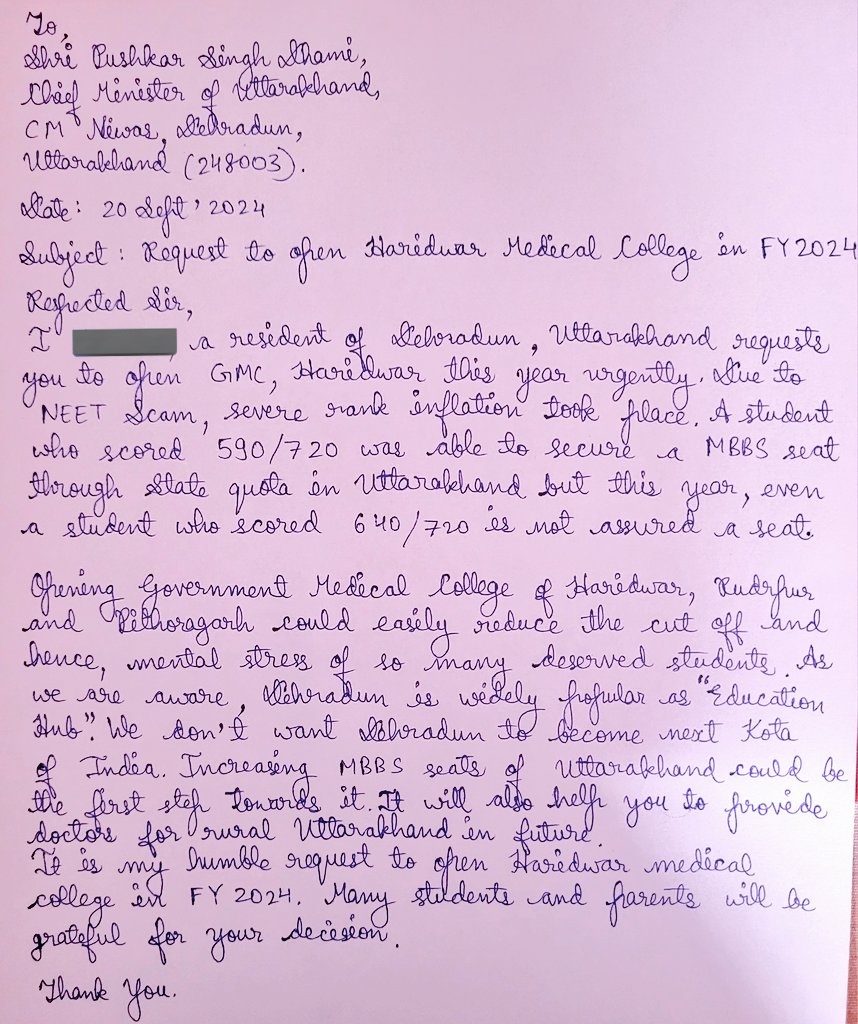 To,
Shri Pushkar Singh Dhami,
Chief Minister of Uttarakhand,
CM Niwas, Dehradun,
Uttarakhand (248003).
Date: 20 Sept' 2024
Subject: Request to open Haridwar Medical College in FY 2024
Respected Sir,
I , a resident of Dehradun, Uttarakhand requests
you to open GMC, Haridwar this year urgently. Due to
NEET Scam, severe rank inflation took place. A student
who scored 590/720 was able to secure a MBBS seat
through State quota in Uttarakhand but this year, even
a student who scored 640/720 is not assured a seat.
Opening Government Medical College of Haridwar, Rudrpur
and Pithoragarh could easily reduce the cut off and
hence, mental stress of so many deserved students. As
we are aware, Dehradun is widely popular as "Education
Hub". We don't want Dehradun to become next Kota
of India. Increasing MBBS seats of Uttarakhand could be
the first step towards it. It will also help you to provide
doctors for rural Uttarakhand in future.
It is my humble request to open Haridwar medical
college in FY 2024. Many students and parents will be
grateful for your decision.
Thank You.